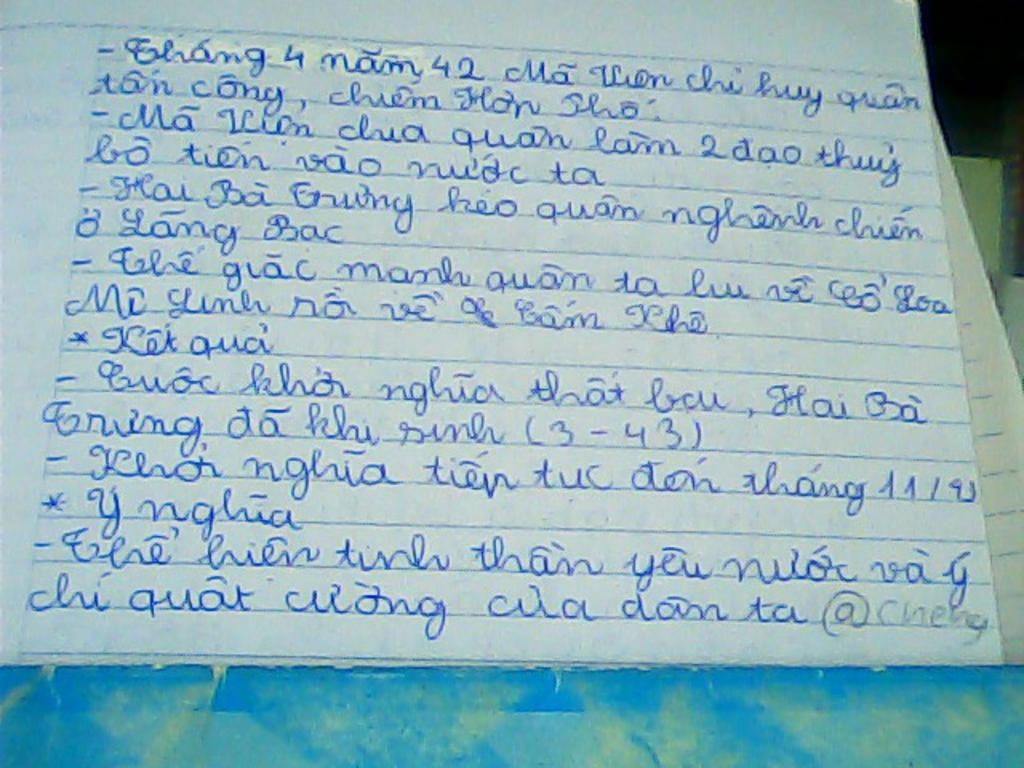 - Tháng 4 năm 42 Mã Viện chỉ huy quân
tấn công, chiếm Hợp Phố.
- Mã Viện chia quân làm 2 đạo thuỷ
bộ tiến vào nước ta
- Hai Bà Trưng kéo quân nghênh chiến
ở Lãng Bạc
- Thế giặc mạnh quân ta lui về Cổ Loa
Mê Linh rồi về Cấm Khê
* Kết quả
- Cuộc khởi nghĩa thất bại, Hai Bà
Trưng đã hi sinh (3 - 43)
- Khởi nghĩa tiếp tục đến tháng 11/
* Ý nghĩa
- Thể hiện tinh thần yêu nước và ý
chí quật cường của dân ta @cheng